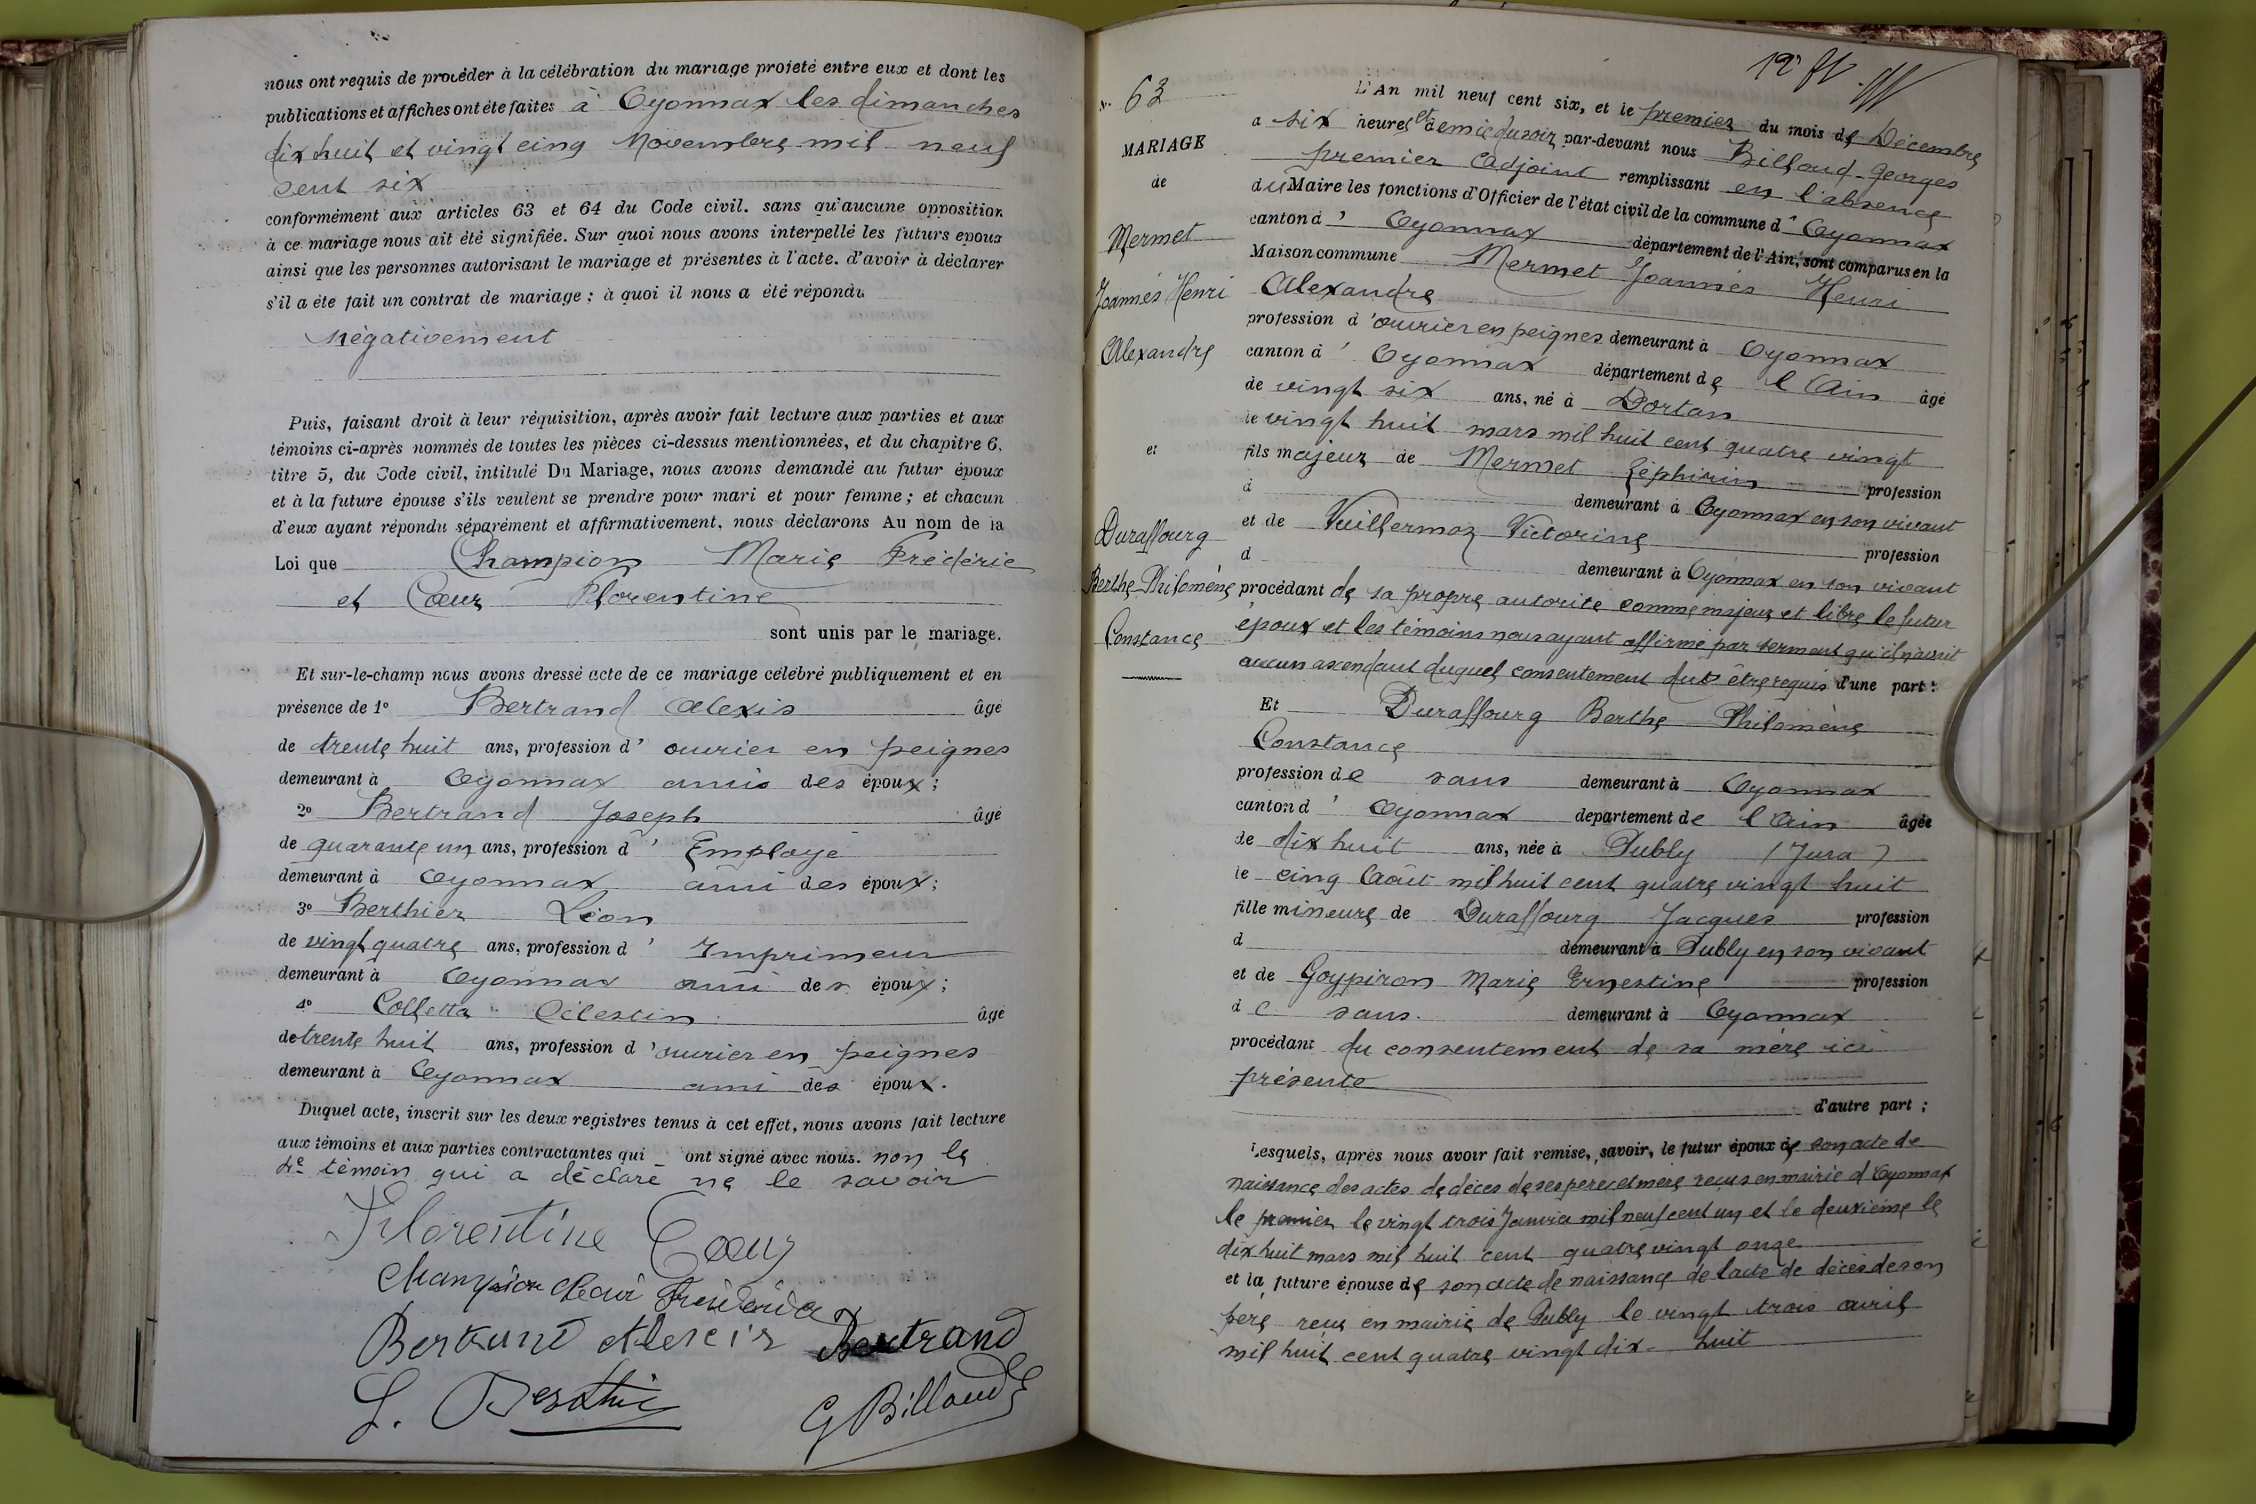 nous ont requis de procéder à la célébration du mariage projeté entre eux et dont les
publications et affiches ont été faites à Oyonnax les dimanches
dix huit et vingt cinq Novembre mil neuf
cent six
conformément aux articles 63 et 64 du Code civil, sans qu'aucune opposition
à ce mariage nous ait été signifiée. Sur quoi nous avons interpellé les futurs époux
ainsi que les personnes autorisant le mariage et présentes à l'acte, d'avoir à déclarer
s'il a été fait un contrat de mariage ; à quoi il nous a été répondu
Négativement
Puis, faisant droit à leur réquisition, après avoir fait lecture aux parties et aux
témoins ci-après nommés de toutes les pièces ci-dessus mentionnées, et du chapitre 6,
titre 5, du Code civil, intitulé Du Mariage, nous avons demandé au futur époux
et à la future épouse s'ils veulent se prendre pour mari et pour femme ; et chacun
d'eux ayant répondu séparément et affirmativement, nous déclarons Au nom de la
Loi que Champion Marie Frédéric
et Cœur Florentine
sont unis par le mariage.
Et sur-le-champ nous avons dressé acte de ce mariage célébré publiquement et en
présence de 1° Bertrand Alexis âgé
de trente huit ans, profession d' ouvrier en peignes
demeurant à Oyonnax ami des époux ;
2° Bertrand Joseph âgé
de quarante un ans, profession d' Employé
demeurant à Oyonnax ami des époux ;
3° Berthier Léon
de vingt quatre ans, profession d' Imprimeur
demeurant à Oyonnax ami des époux ;
4° Colletta Célestin âgé
de trente huit ans, profession d' ouvrier en peignes
demeurant à Oyonnax ami des époux.
Duquel acte, inscrit sur les deux registres tenus à cet effet, nous avons fait lecture
aux témoins et aux parties contractantes qui ont signé avec nous. non le
4e témoin qui a déclaré ne le savoir
Florentine Cœur
Champion Frédéric
Bertrand Alexis Bertrand
L. Berthier
G Billoud
N° 63
MARIAGE
de
Mermet
Joannès Henri
Alexandre
et
Duraffourg
Berthe Philomène
Constance
L'An mil neuf cent six, et le premier du mois de Décembre
a six heures et demie du soir par-devant nous Billoud Georges
premier Adjoint remplissant en l'absence
du Maire les fonctions d'Officier de l'état civil de la commune d' Oyonnax
canton d' Oyonnax département de l'Ain, sont comparus en la
Maison commune Mermet Joannès Henri
Alexandre
profession d' ouvrier en peignes demeurant à Oyonnax
canton d' Oyonnax département de l'Ain âgé
de vingt six ans, né à Dortan
le vingt huit mars mil huit cent quatre vingt
fils majeur de Mermet Zéphirin profession
d demeurant à Oyonnax en son vivant
et de Vuillermoz Victorine profession
d demeurant à Oyonnax en son vivant
procédant de sa propre autorité comme majeur et libre le futur
époux et les témoins nous ayant affirmé par serment qu'il n'avait
aucun ascendant duquel consentement dut être requis d'une part :
Et Duraffourg Berthe Philomène
Constance
profession de sans demeurant à Oyonnax
canton d' Oyonnax département de l'Ain âgée
de dix huit ans, née à Publy (Jura)
le cinq Août mil huit cent quatre vingt huit
fille mineure de Duraffourg Jacques profession
d demeurant à Publy en son vivant
et de Goypiron Marie Ernestine profession
de sans. demeurant à Oyonnax
procédant du consentement de sa mère ici
présente
d'autre part ;
Lesquels, après nous avoir fait remise, savoir, le futur époux de son acte de
naissance des actes de décès de ses père et mère reçus en mairie d'Oyonnax
le premier le vingt trois Janvier mil neuf cent un et le deuxième le
dix huit mars mil huit cent quatre vingt onze
et la future épouse de son acte de naissance de l'acte de décès de son
père reçu en mairie de Publy le vingt trois avril
mil huit cent quatre vingt dix-huit